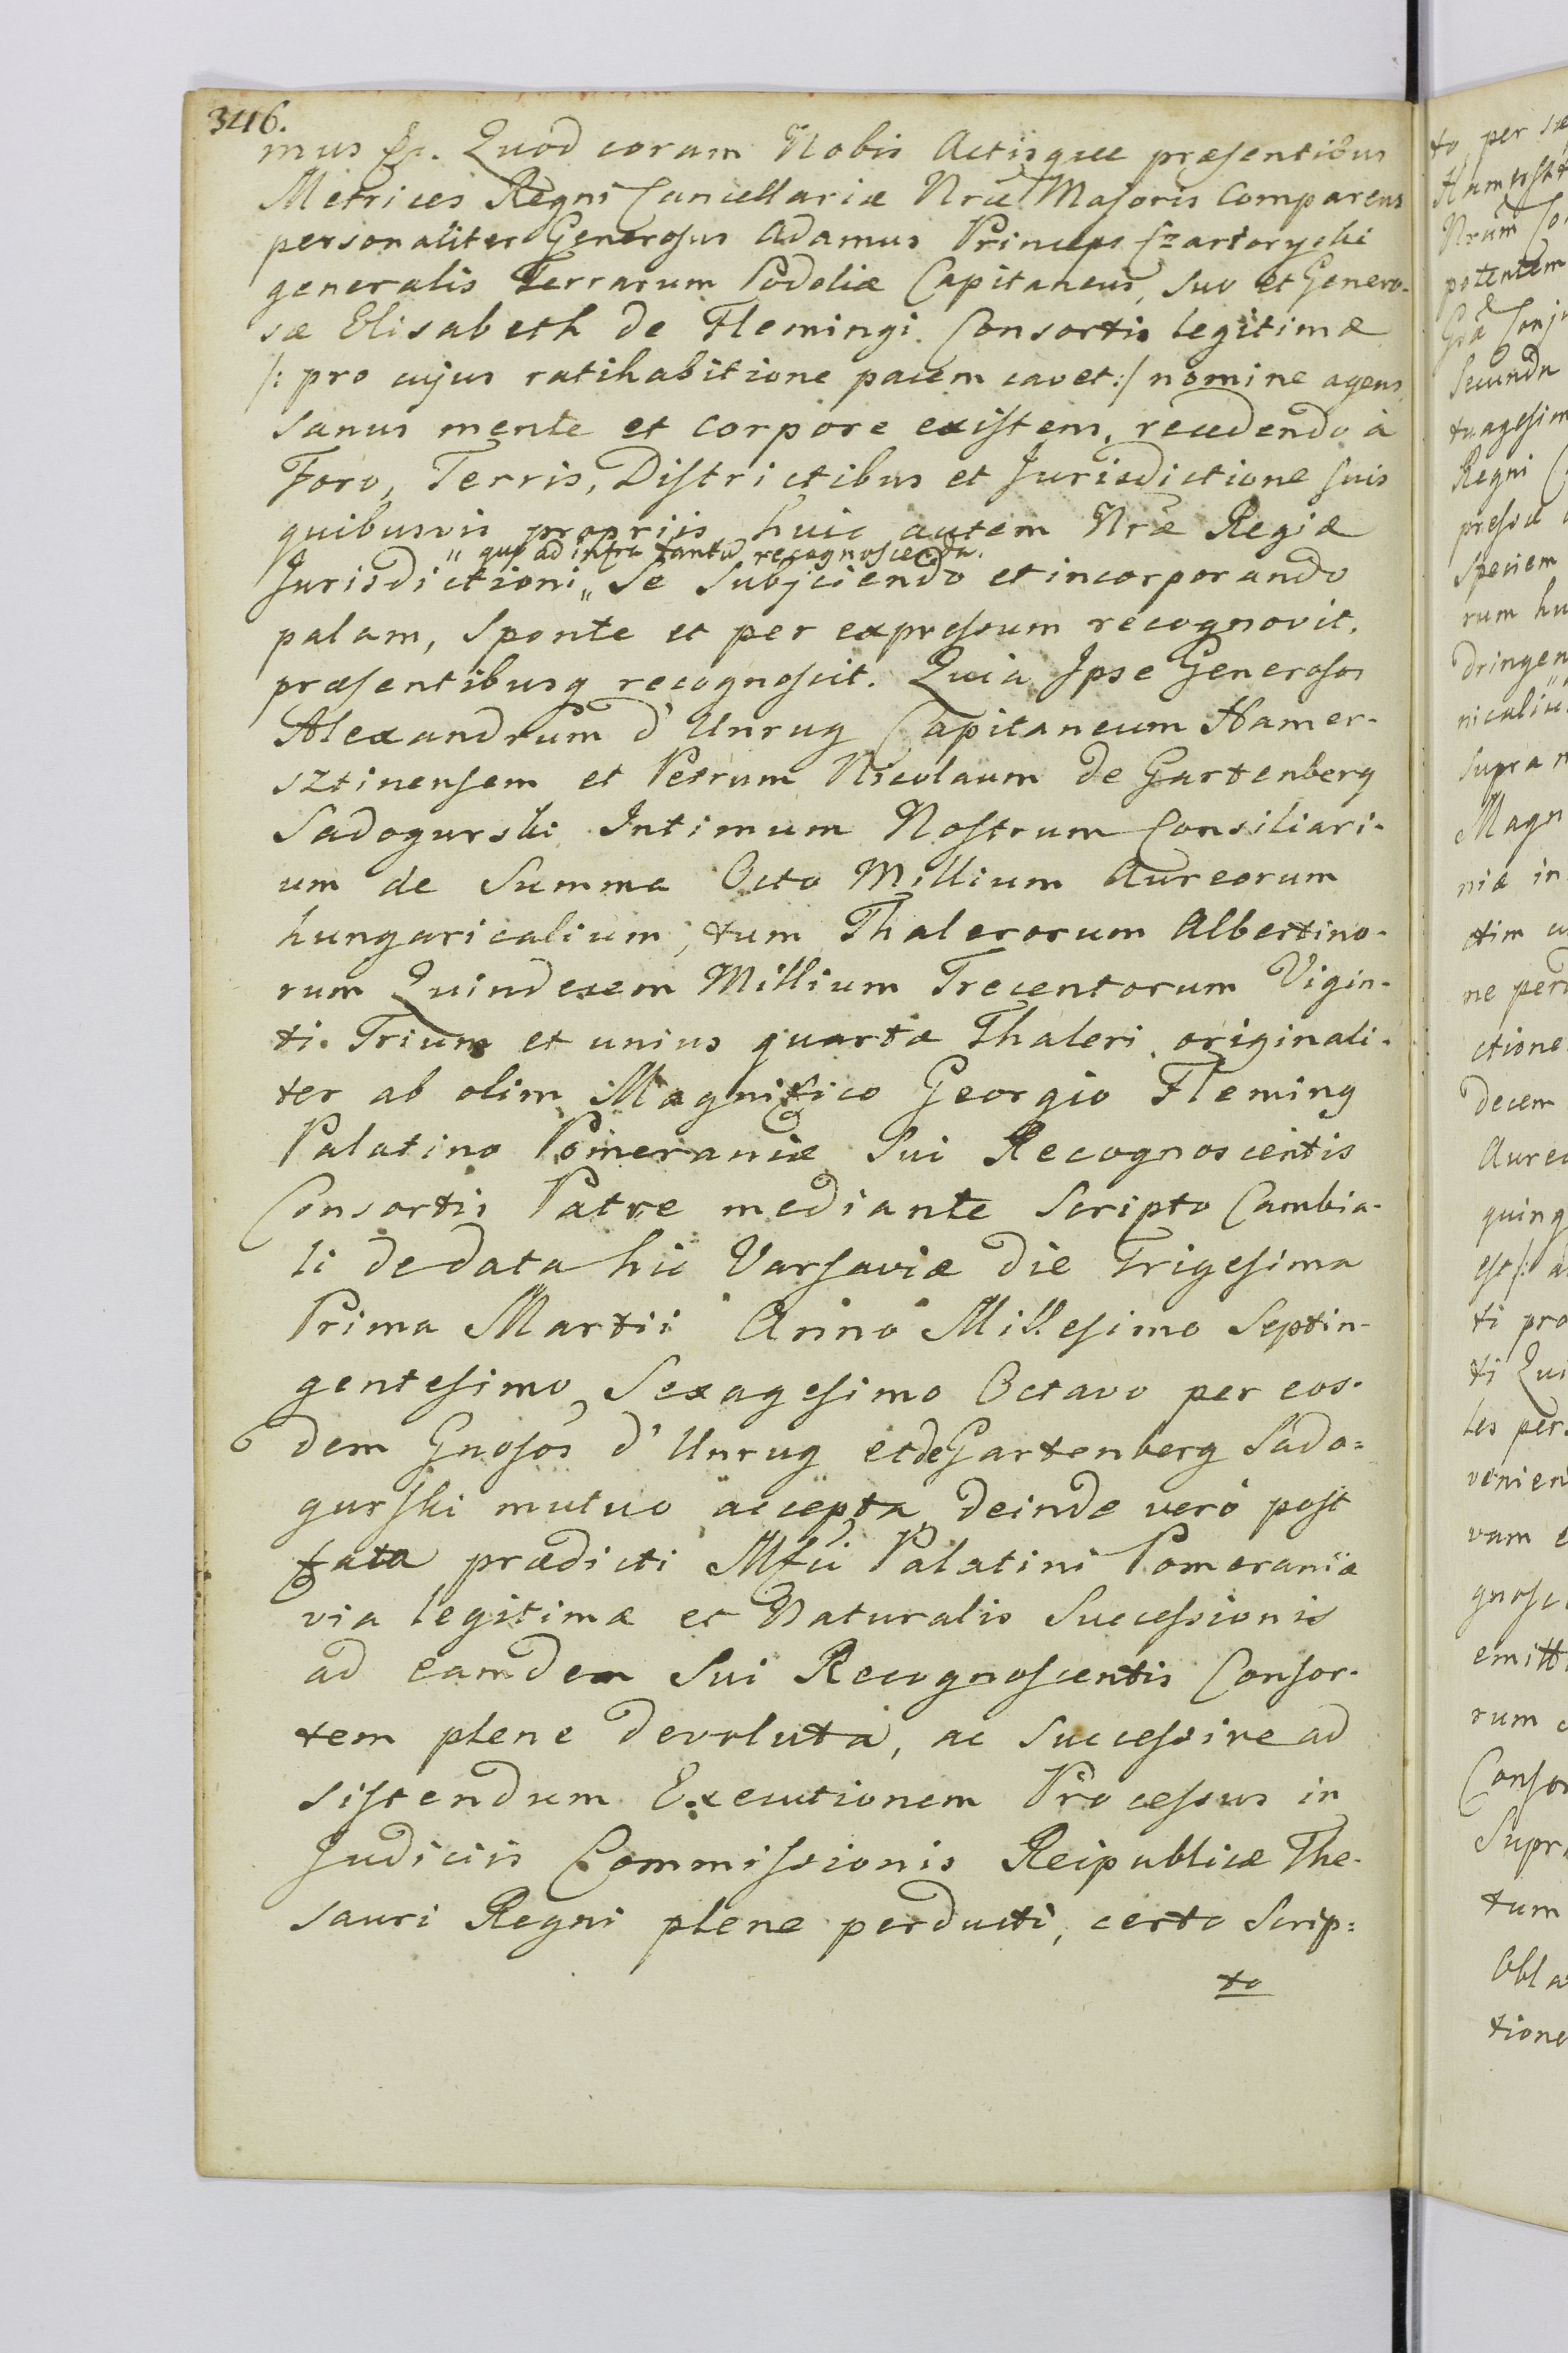 346.
mus &c. Quod coram Nobis Actisque præsentibus
Metrices Regni Cancellariæ Nræ Majoris Comparens
personaliter Generosus Adamus Princeps Czartoryski
generalis Terrarum Podoliæ Capitaneus, suo et Genero-
sæ Elisabeth de Flemingi. Consortis legitimæ
/: pro cujus ratihabitione pacem cavet :/ nomine agens
sanus mente et corpore existens, recedendo à
Foro, Terris, Districtibus et Jurisdictione suis
quibusvis propriis huic autem Nræ Regiæ
" quo ad infra tantū recognoscenda.
Jurisdictioni " se subjiciendo et incorporando
palam, sponte et per expressum recognovit,
præsentibusq recognoscit. Quia Ipse Generosos
Alexandrum d' Unrug Capitaneum Hamer-
sztinensem et Petrum Nicolaum de Gartenberg
Sadogurski Intimum Nostrum Consiliari-
um de Summa Octo Millium Aureorum
hungaricalium, tum Thalerorum Albertino-
rum Quindecem Millium Trecentorum Vigin-
ti. Trium et unius quartæ Thaleri originali-
ter ab olim Magnifico Georgio Fleming
Palatino Pomeraniæ Sui Recognoscentis
Consortis Patre mediante Scripto Cambia-
li de data hic Varsaviæ die Trigesima
Prima Martii Anno Millesimo Septin-
gentesimo Sexagesimo Octavo per eos-
dem Gnosos d' Unrug et de Gartenberg Sado=
gurski mutuo accepta deinde verò post
fata prædicti Mfci Palatini Pomeraniæ
via legitimæ et Naturalis Successionis
ad eamdem Sui Recognoscentis Consor-
tem plene devoluta, ac successive ad
sistendum Executionem Processus in
Judiciis Commissionis Reipublicæ The-
sauri Regni plene perducti, certo Scrip=
to
to, per
potentem
Regni
speciem
rum
supra
Magn
niæ in
ctim
ctione
decem
quinq
ti pro
ti
vam
emitt
rum
Conso
tum
tione